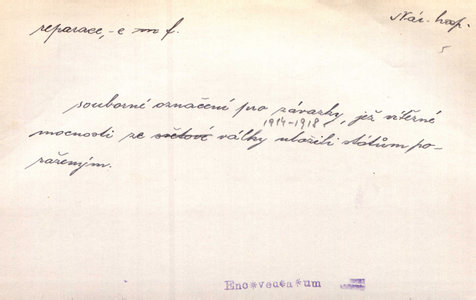 Nár. hosp.
reparace, -e m f.
souborné označení pro závazky, jež vítězné
1914-1918
mocnosti ze světové války uložili státům po-
raženým.
Enc*veda*um